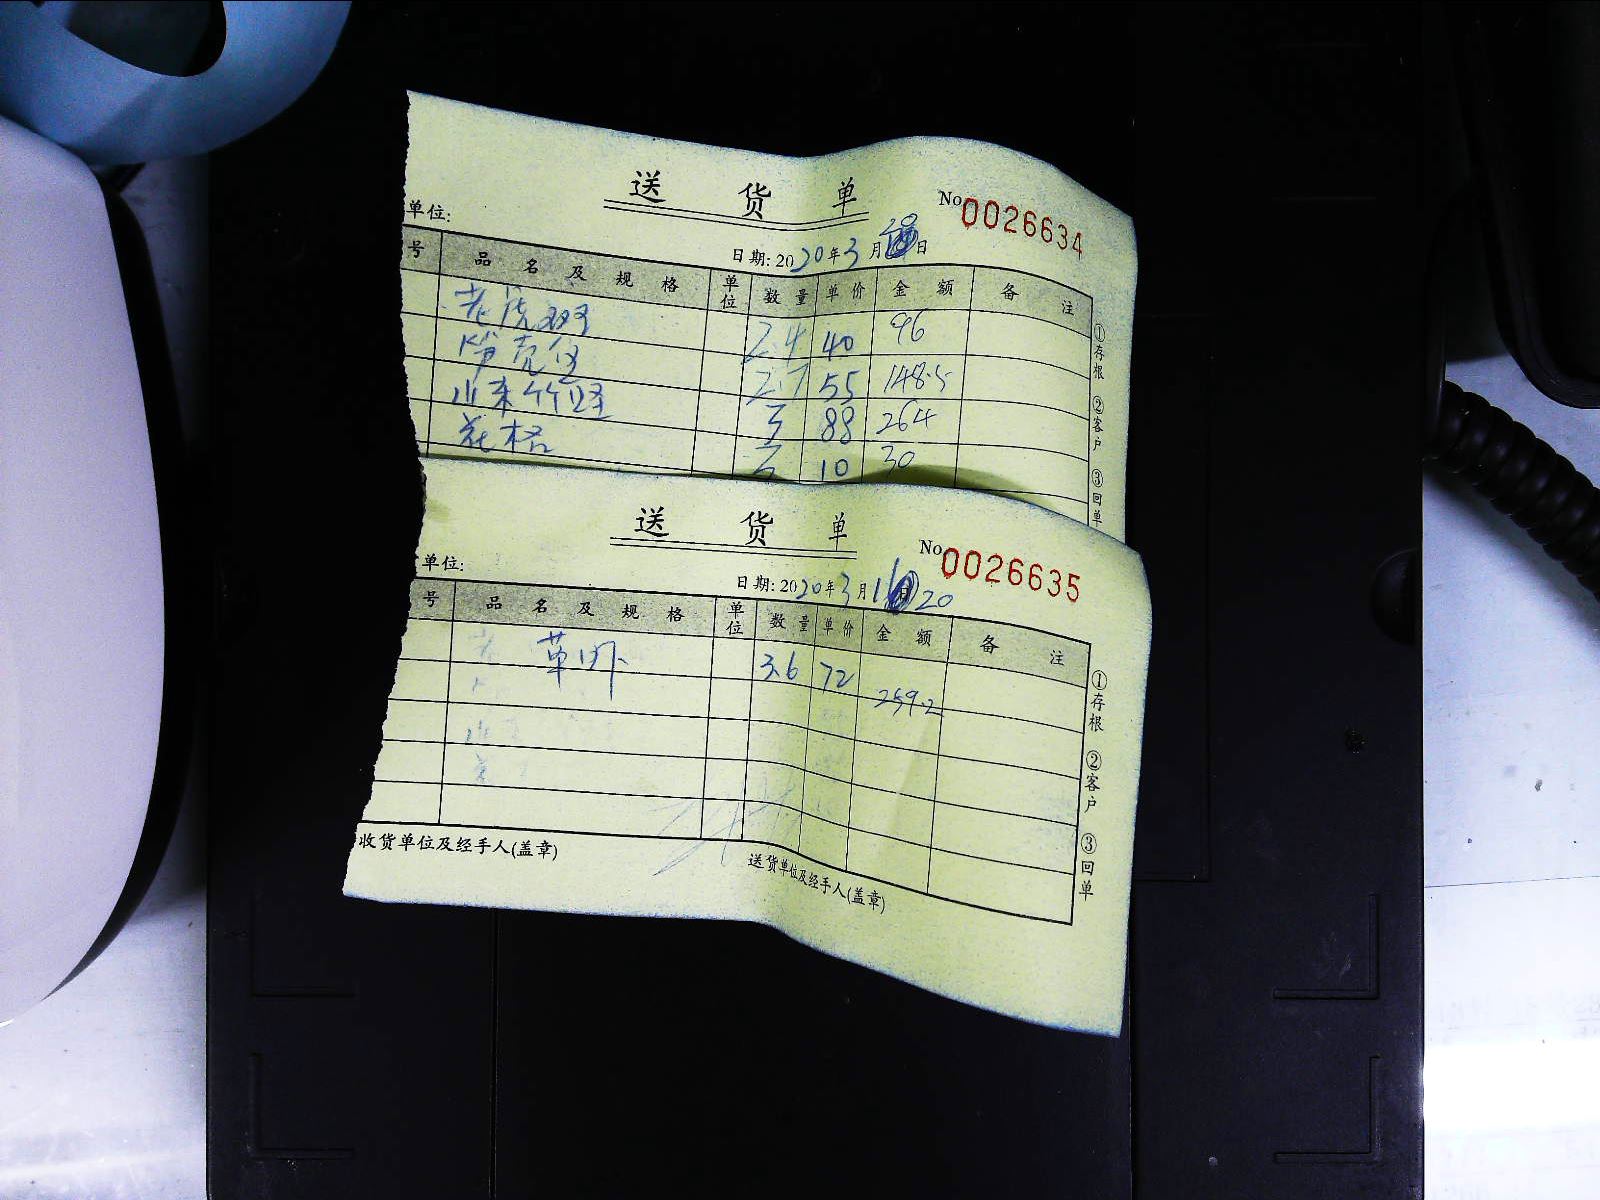 送 货 单
No 0026634
单位:
日期: 2020年3月20日
号 品名及规格 单位 数量 单价 金额 备注
老虎斑 2.4 40 96
笋壳 2.7 55 148.5
3 88 264
花 10 30
①存根 ②客户 ③回单
送 货 单
No 0026635
单位:
日期: 2020年3月 20
号 品名及规格 单位 数量 单价 金额 备注
草 3.6 72 259.2
①存根 ②客户 ③回单
收货单位及经手人(盖章) 送货单位及经手人(盖章)